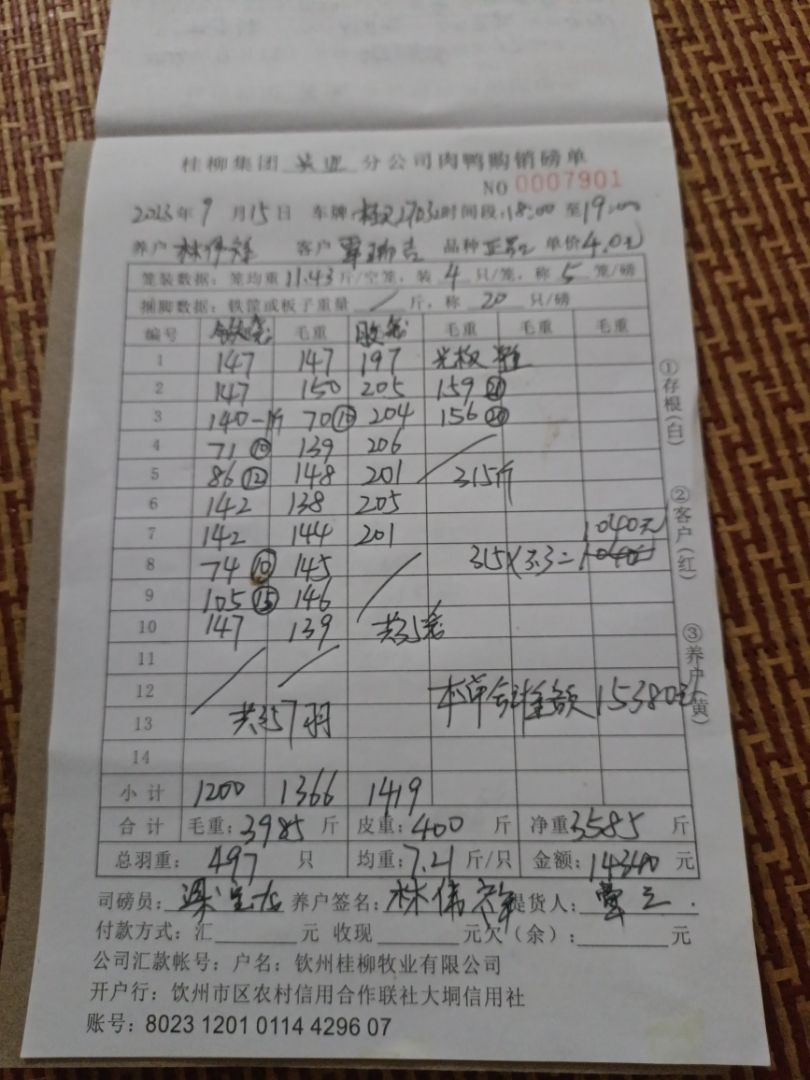 桂柳集团 分公司肉鸭购销磅单
NO 0007901
2023年9月15日 车牌: 时间段:18:00至19:00
养户 林伟祥 客户 覃瑞吉 品种 单价4.0元
笼装数据:笼均重11.43斤/空笼,装4只/笼,称5笼/磅
捆脚数据:铁筐或板子重量/斤,称20只/磅
编号 毛重 毛重 毛重 毛重
1 147 147 197
2 147 150 205 159 ⑳
3 140 70⑩ 204 156 ⑳
4 71⑩ 139 206
5 86⑫ 148 201 315斤
6 142 138 205
7 142 144 201 1040元
8 74⑩ 145 315×3.3=
9 105⑮ 146
10 147 139 共35笼
11
12 本单合计金额15380元
13 共357羽
14
小计 1200 1366 1419
合计 毛重:3985斤 皮重:400斤 净重3585斤
总羽重:497只 均重:7.21斤/只 金额:14340元
司磅员: 养户签名:林伟祥 提货人:
付款方式:汇 元 收现 元欠(余): 元
公司汇款帐号:户名:钦州桂柳牧业有限公司
开户行:钦州市区农村信用合作联社大垌信用社
账号:8023 1201 0114 4296 07
①存根(白)
②客户(红)
③养户(黄)